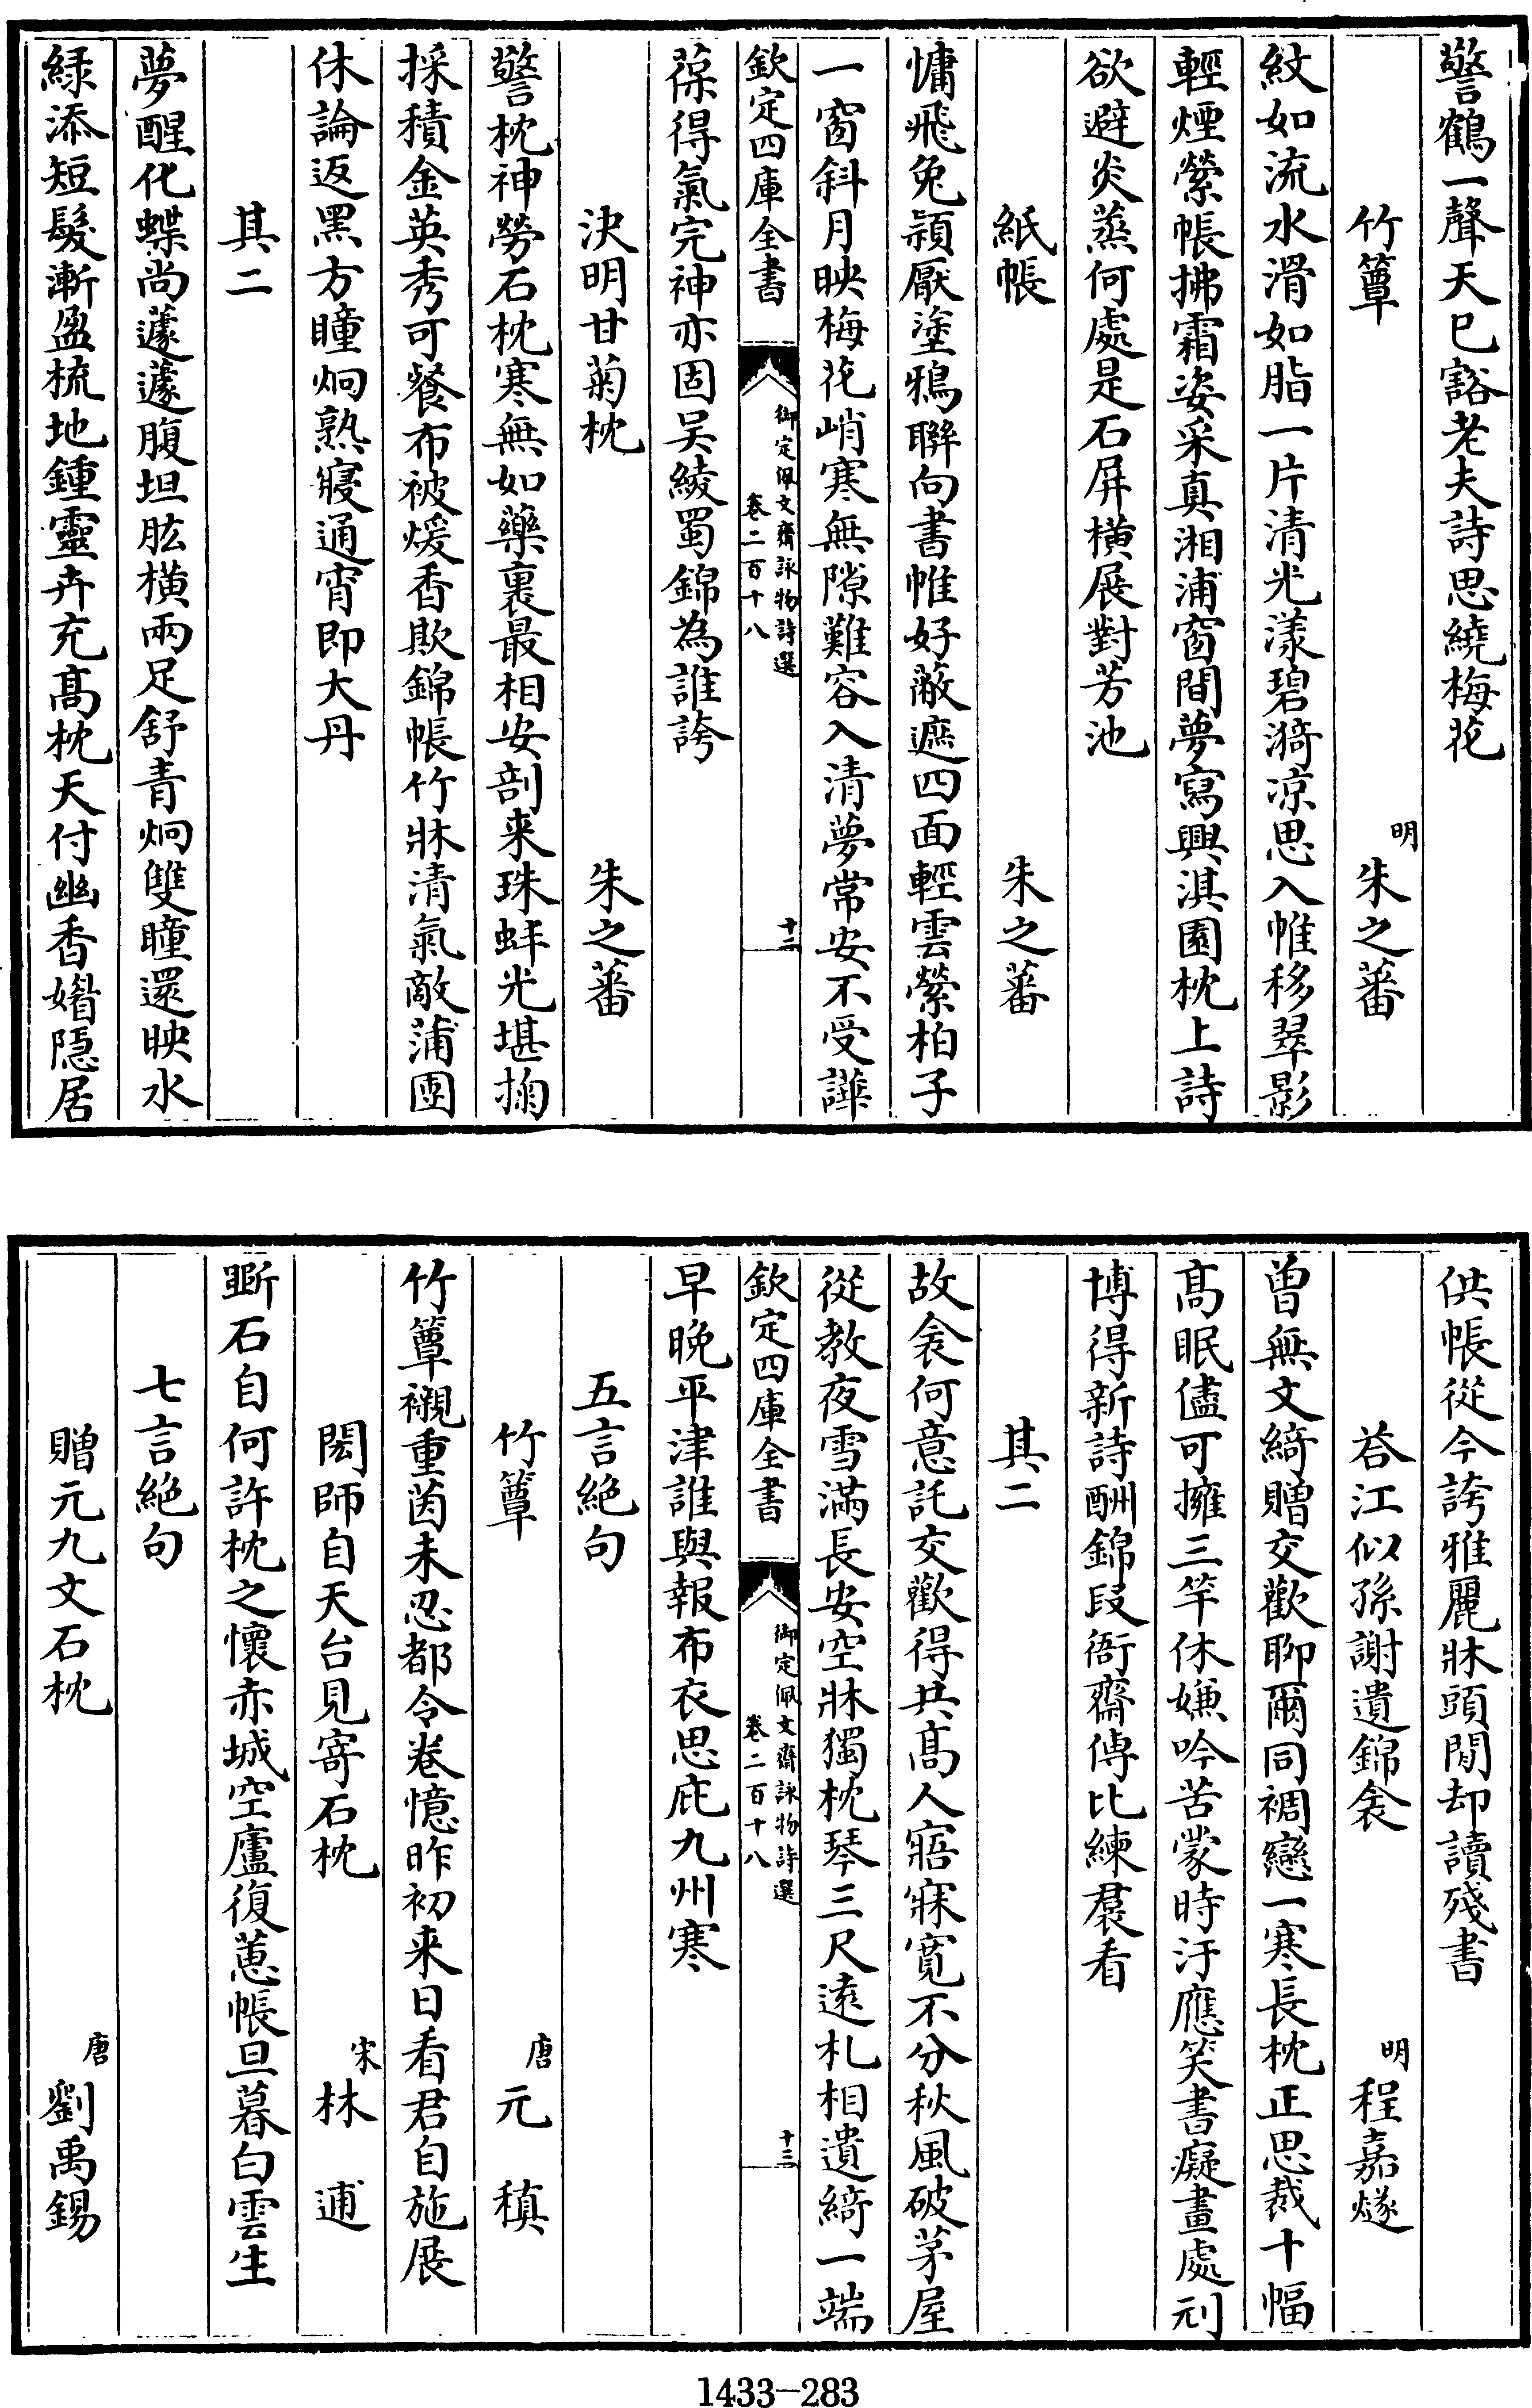 警鶴一聲天巳豁老夫詩思繞梅花
竹簟
明朱之蕃
紋如流水滑如脂一片清光漾碧漪凉思入帷移翠影
輕煙縈帳拂霜姿采真湘浦窗間夢寫興淇園枕上詩
欲避炎蒸何處是石屏横展對芳池
紙帳
朱之蕃
慵飛兔頴厭塗鴉聨向書帷好蔽遮四面輕雲縈柏子
一窗斜月映梅花峭寒無隙難容入清夢常安不受譁
欽定四庫全書
御定佩文齋詠物詩選
卷二百十八
十二
葆得氣完神亦固吴綾蜀錦為誰誇
决明甘菊枕
朱之蕃
警枕神勞石枕寒無如藥裹最相安剖来珠蚌光堪掬
採積金英秀可餐布被煖香欺錦帳竹牀清氣敵蒲團
休論返黑方瞳炯熟寢通宵即大丹
其二
夢醒化蝶尚蘧蘧腹坦肱橫兩足舒青炯雙瞳還映水
緑添短髮漸盈梳地鍾靈卉充髙枕天付幽香媚隠居
供帳從今誇雅麗牀頭閒却讀殘書
荅江似孫謝遺錦衾
明程嘉燧
曽無文綺贈交歡聊爾同裯戀一寒長枕正思裁十幅
髙眠儘可擁三竿休嫌吟苦蒙時汙應笑書癡畫處刓
博得新詩酬錦段衙齋傳比練裠看
其二
故衾何意託交歡得共髙人寤寐寛不分秋風破茅屋
從教夜雪滿長安空牀獨枕琴三尺逺札相遺綺一端
欽定四庫全書
御定佩文齋詠物詩選
卷二百十八
十三
早晚平津誰與報布衣思庇九州寒
五言絶句
竹簟
唐元稹
竹簟襯重茵未忍都令卷憶昨初来日看君自施展
閎師自天台見寄石枕
宋林逋
斲石自何許枕之懷赤城空廬復蕙帳旦暮白雲生
七言絶句
贈元九文石枕
唐劉禹錫
1433—283